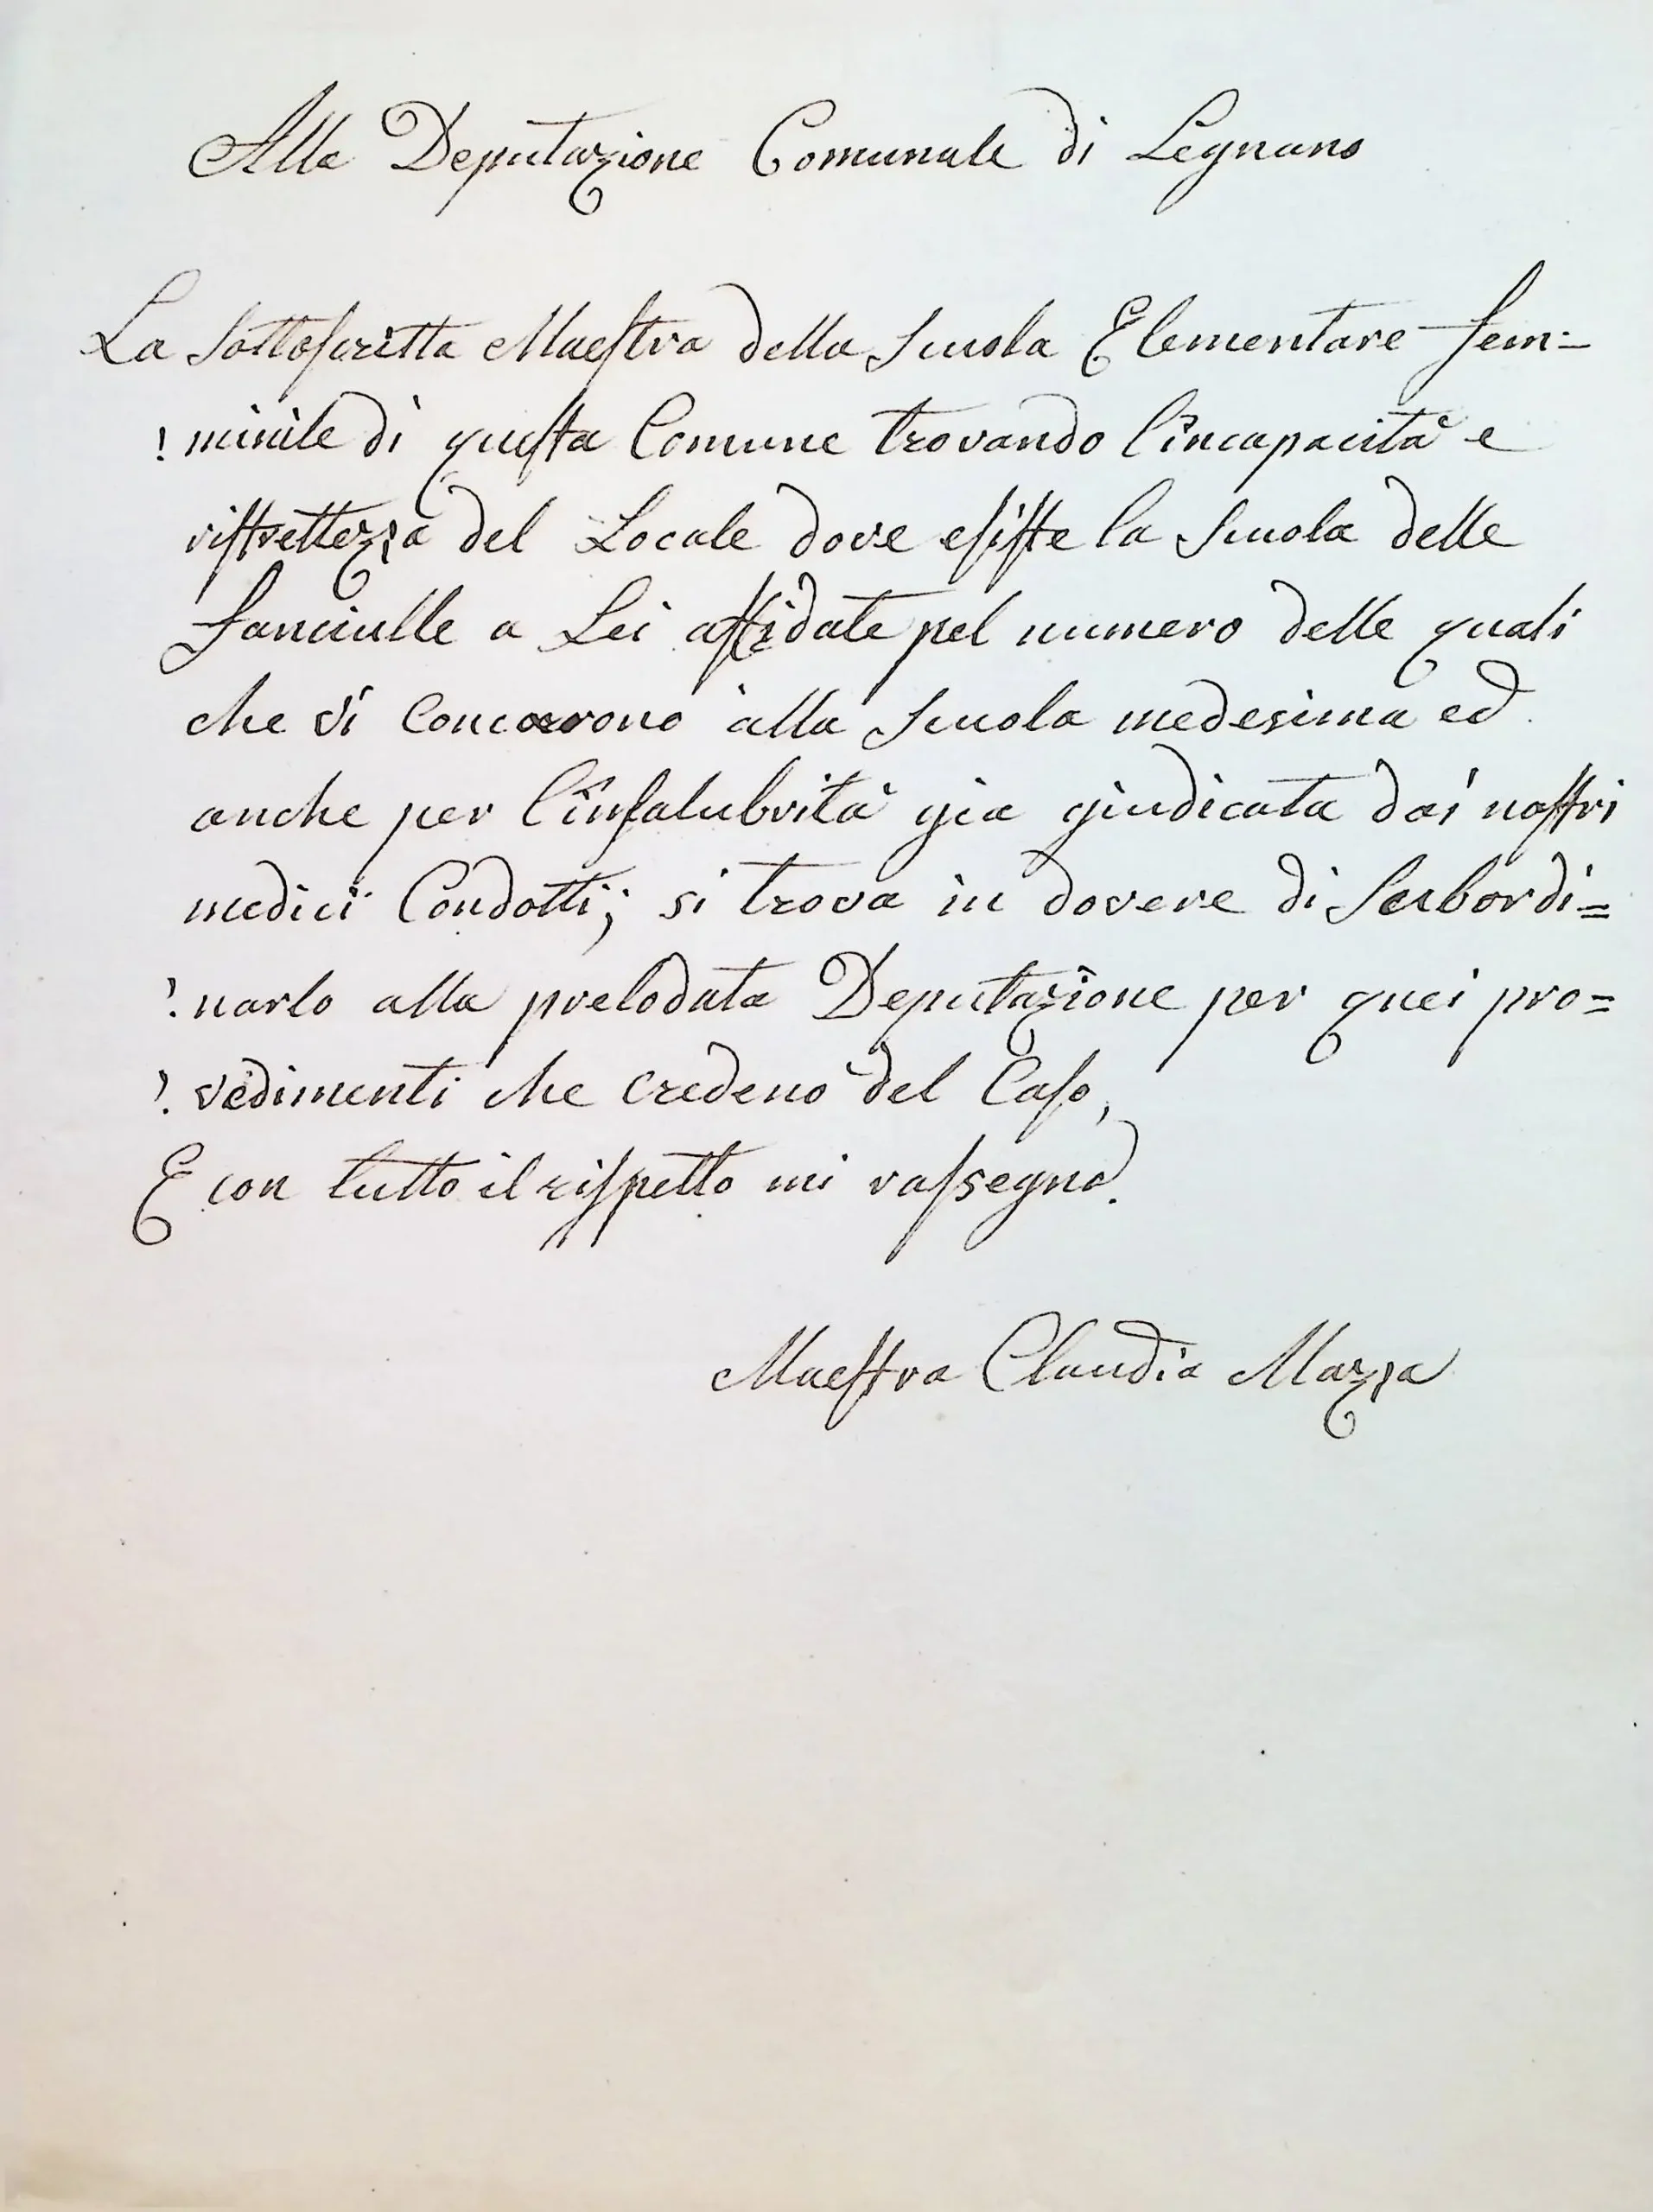 Alla Deputazione Comunale di Legnano
La sottoscritta Maestra della Scuola Elementare fem=
minile di questa Comune trovando l'incapacità e
ristrettezza del Locale dove esiste la Scuola delle
fanciulle a Lei affidate pel numero delle quali
che si concorrono alla Scuola medesima ed
anche per l'insalubrità già giudicata dai nostri
medici Condotti; si trova in dovere di Subordi=
narlo alla prelodata Deputazione per quei pro=
vedimenti che credeno del Caso,
E con tutto il rispetto mi rassegno.
Maestra Claudia Mazza